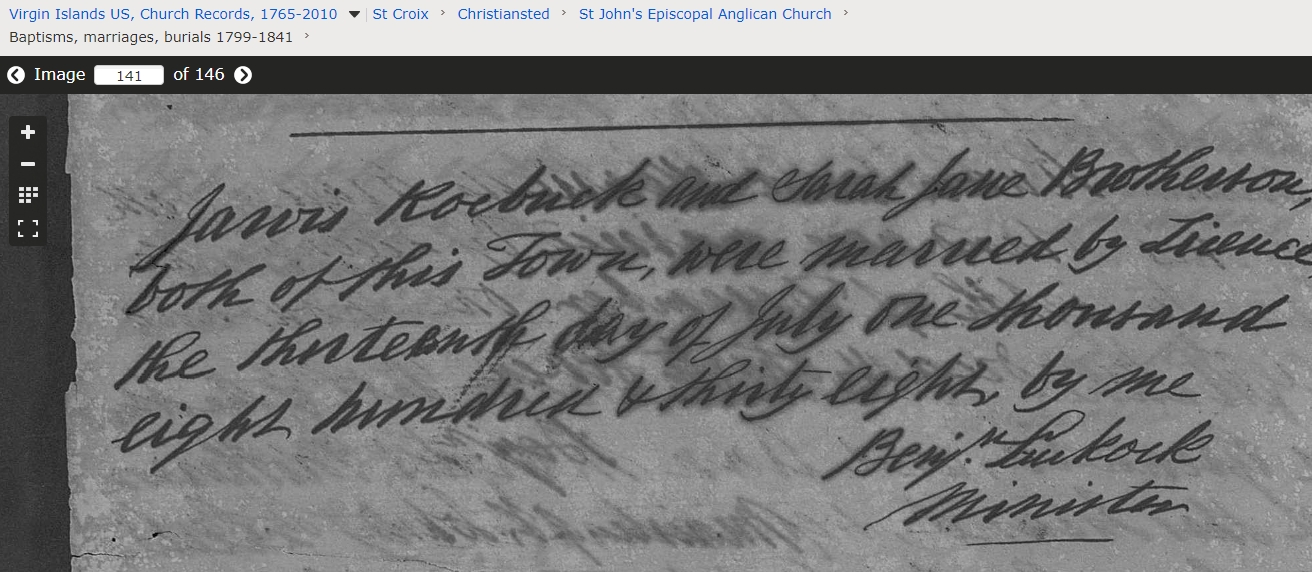 Virgin Islands US, Church Records, 1765-2010 St Croix › Christiansted › St John's Episcopal Anglican Church ›
Baptisms, marriages, burials 1799-1841 ›
Image 141 of 146
Jarvis Roebuck and Sarah Jane Brotherson,
both of this Town, were married by Licence
the thirteenth day of July one thousand
eight hundred & thirty eight, by me
Benj.n Luckock
Minister